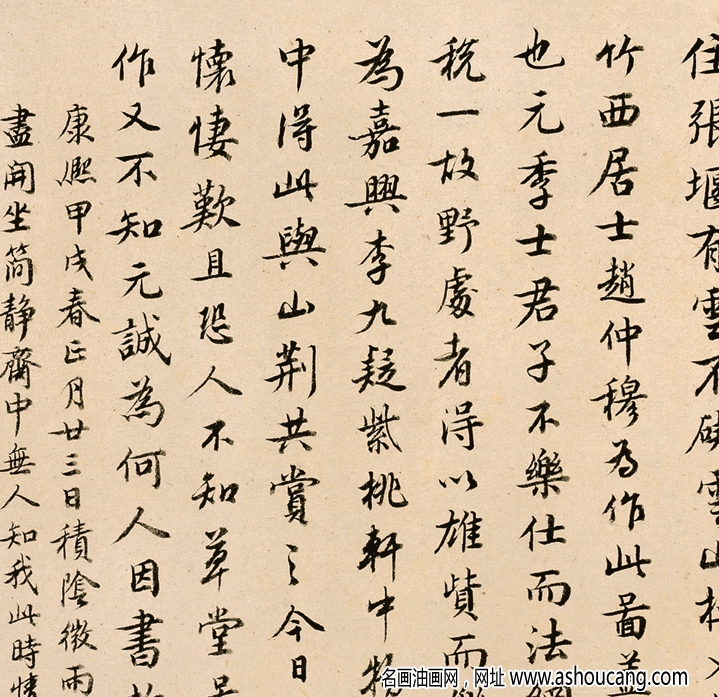 住張堰有雲不礙雲山
竹西居士趙仲穆為作此啚蓋
也元季士君子不樂仕而法
稅一故野處者得以雄貲而
為嘉興李九疑紫桃軒中物
中得此與山荆共賞之今日
懷悽歎且恐人不知草堂
作又不知元誠為何人因書
康熙甲戌春正月廿三日積陰微雨
盡開坐簡靜齋中無人知我此時情
名画油画网，网址 www.ashoucang.com